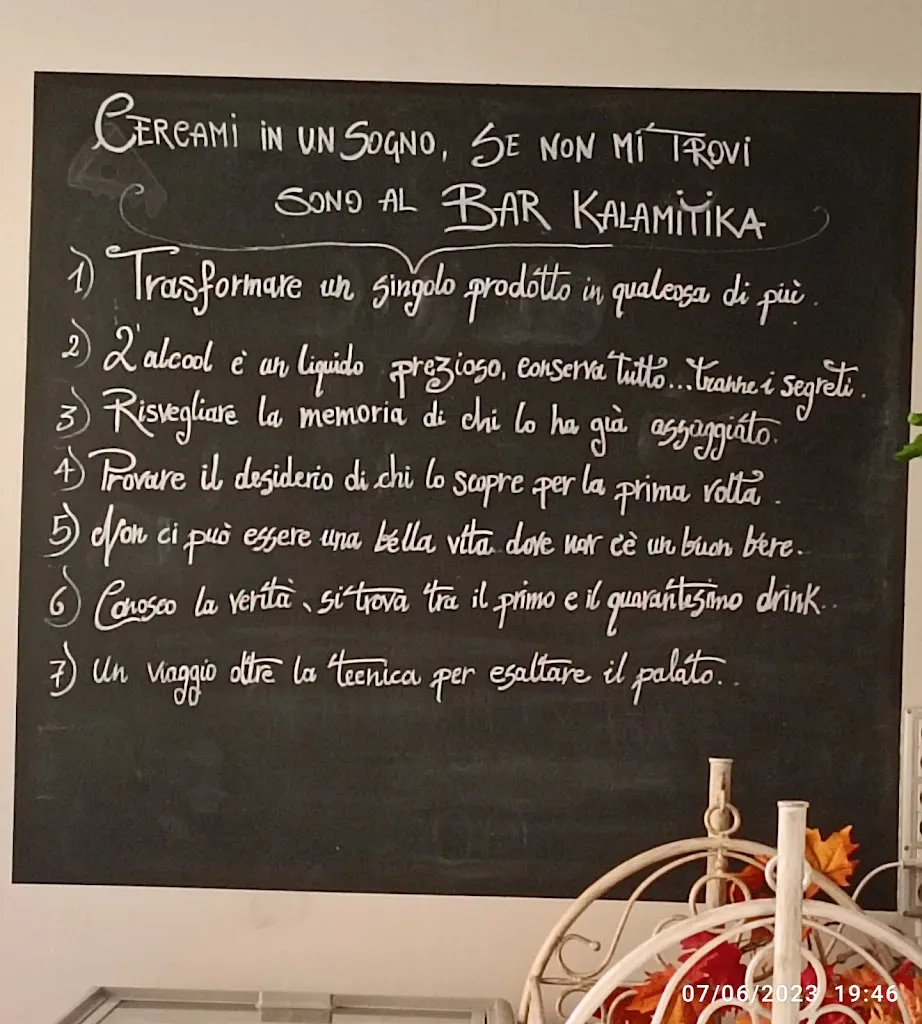 CERCAMI IN UN SOGNO, SE NON MI TROVI
SONO AL BAR KALAMITIKA
1) Trasformare un singolo prodotto in qualcosa di più.
2) L'alcool è un liquido prezioso, conserva tutto...tranne i segreti.
3) Risvegliare la memoria di chi lo ha già assaggiato.
4) Provare il desiderio di chi lo scopre per la prima volta.
5) Non ci può essere una bella vita dove non c'è un buon bere.
6) Conosco la verità, si trova tra il primo e il quarantesimo drink..
7) Un viaggio oltre la tecnica per esaltare il palato..
07/06/2023 19:46